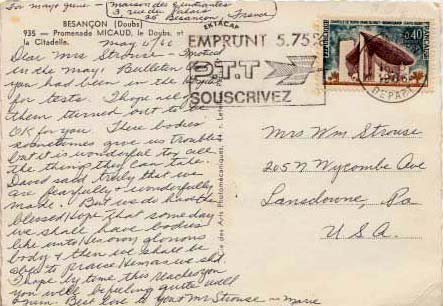 For mays June - Maison des Etudiantes
3, rue du Palais
26 Besançon, France
BESANÇON (Doubs)
935 - Promenade MICAUD, le Doubs, et
la Citadelle.
May 6/66
Dear Mrs Strouse - Noticed
in the May Bulletin that
you had been in the Hospital
for tests. I hope all of
them turned out to be
OK for you. These bodies
sometimes give us trouble
but it is wonderful
the things they can take.
David said truly that we
are fearfully & wonderfully
made. But we do have the
blessed Hope that someday
we shall have bodies
like unto His own glorious
body & then we shall be
able to Praise Him as we shd.
I hope by time this reaches you
you will be feeling quite well
again. Best Love to you & Mr Strouse - Marie
EMPRUNT 5.75%
PTT
SOUSCRIVEZ
0,40
1966
DEPART
Mrs Wm Strouse
205 N Wycombe Ave
Lansdowne, Pa
U.S.A.